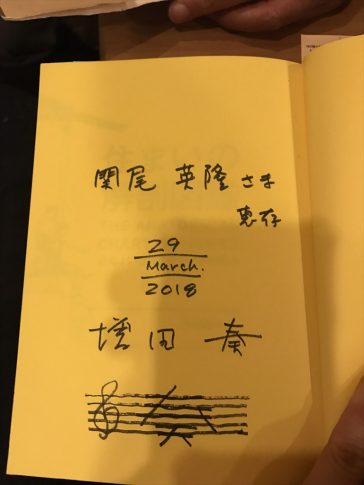 関尾 英隆 さま
恵存
29
March.
2018
増田 奏